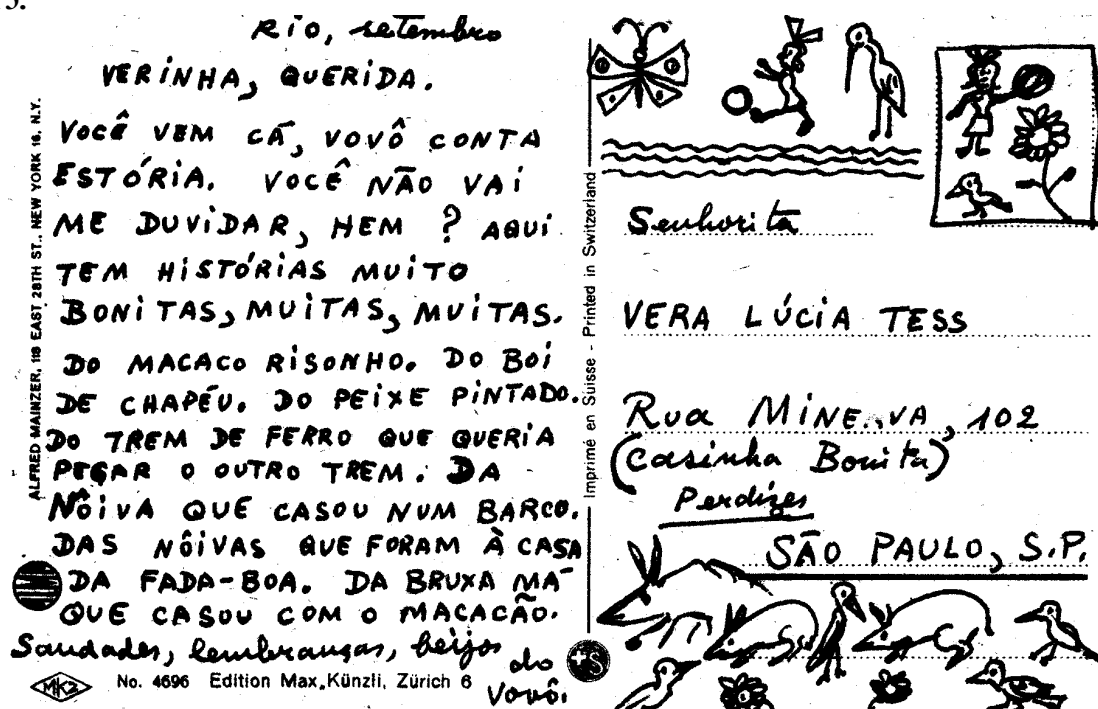 15.
Rio, setembro
VERINHA, QUERIDA.
VOCÊ VEM CÁ, VOVÔ CONTA
ESTÓRIA. VOCÊ NÃO VAI
ME DUVIDAR, HEM ? AQUI
TEM HISTÓRIAS MUITO
BONITAS, MUITAS, MUITAS.
DO MACACO RISONHO. DO BOI
DE CHAPÉU. DO PEIXE PINTADO.
DO TREM DE FERRO QUE QUERIA
PEGAR O OUTRO TREM. DA
NÔIVA QUE CASOU NUM BARCO.
DAS NÔIVAS QUE FORAM À CASA
DA FADA-BOA. DA BRUXA MÁ
QUE CASOU COM O MACACÃO.
Saudades, lembranças, beijos
do
Vovô.
MK2 No. 4696 Edition Max Künzli, Zürich 6
ALFRED MAINZER, 118 EAST 28TH ST., NEW YORK 16. N.Y.
Imprimé en Suisse - Printed in Switzerland
Senhorita
VERA LÚCIA TESS
Rua MINERVA, 102
(Casinha Bonita)
Perdizes
SÃO PAULO, S.P.